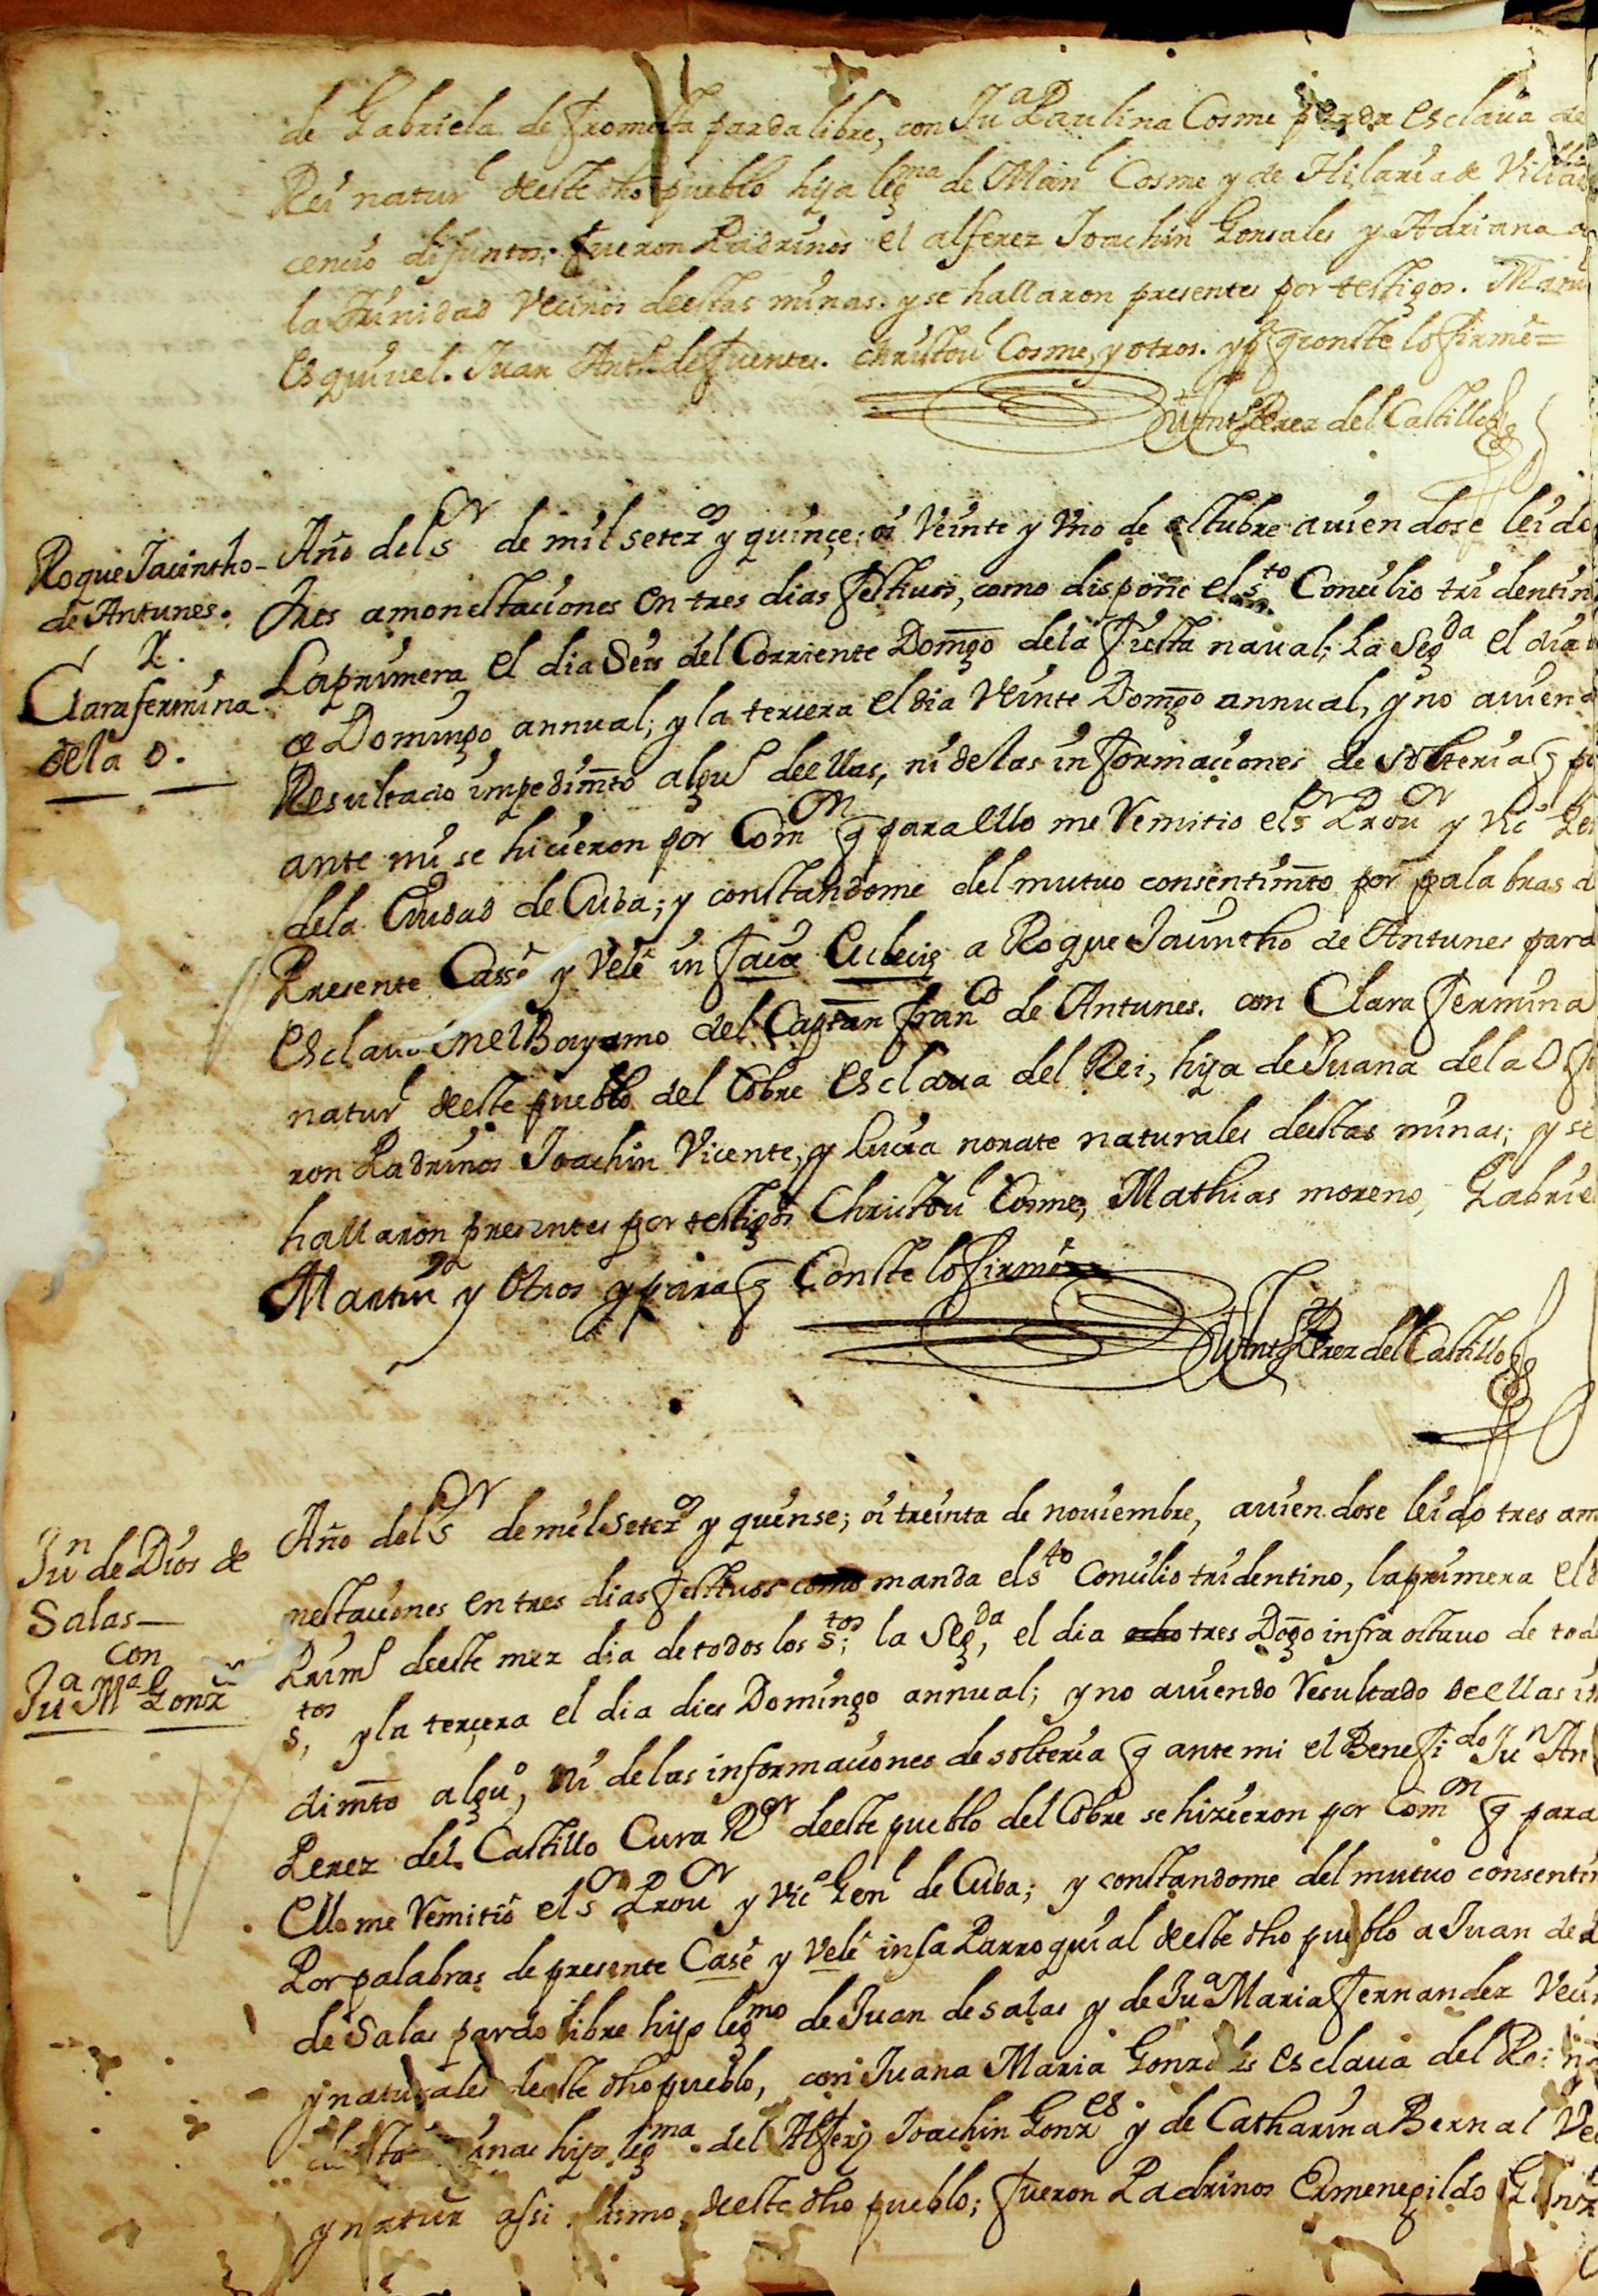 de Gabriela de fromesta parda libre, con Juª Paulina Cosme parda esclava de
Rei naturˡ deeste dho pueblo hija legᵐᵃ de Manˡ Cosme y de Hilaria de
cencio difuntos. fueron Padrinos el alferez Joachin Gonsales y Adriana
la Trinidad Vecinos deestas minas. y se hallaron presentes por testigos.
Esquivel. Juan Antᵒ de fuentes. christouˡ Cosme, y otros. y p q conste lo firmé=
Juº Antº Perez del Castillo
Roque Jacintho
de Antunes.
Clara fermina
de la O.
Año del Sʳ de mil setezᵒˢ y quinçe; oi Veinte y Vno de octubre auiendose leido
tres amonestaciones en tres dias festiuos, como dispone el sᵗᵒ Concilio tridentin
La primera el dia Seis del Corriente Domgo dela fiesta naual; La Segᵈᵃ el dia
Domingo annual; y la tercera el dia Veinte Domgo annual, y no auiend
Resultado impedimto alguº deellas, ni delas informaçiones de solteria q
ante mi se hicieron por Comᵒⁿ q para ello me Remitio el sᵒʳ Prouᵒʳ y Vicº
dela Ciudad de Cuba; y constandome del mutuo consentimto por palabras d
Presente Cassè y Velè in facie Eclecię a Roque Jacintho de Antunes pard
Esclauo en el Bayamo del Captan franᶜᵒ de Antunes. con Clara fermina
naturˡ deeste pueblo del Cobre esclaua del Rei, hija de Juana de la O
ron Padrinos Joachin Vicente, y Lucia norate naturales deestas minas; y se
hallaron presentes por testigos Christouˡ Cosme, Mathias moreno, Gabrie
Martin y otros y para q Conste lo firmé
Juº Antº Perez del Castillo
Juⁿ de Dios de
Salas
con
Juª Mª Gonzˢ
Año del Sʳ de mil setezᵒˢ y quinse; oi treinta de nouiembre, auiendose leido tres am
nestaciones en tres dias festiuos como manda el sᵗᵒ Concilio tridentino, la primera el d
Primº deeste mez dia de todos los sᵗᵒˢ; la Segᵈᵃ, el dia ocho tres Dogo infra octauo de tod
sᵗᵒˢ, y la terçera el dia dies Domingo annual; y no auiendo Resultado deellas in
dimto alguº, ni de las informaciones de solteria q ante mi el Benefiᵈᵒ Juⁿ An
Perez del Castillo Cura Rᵒʳ deeste pueblo del Cobre se hizieron por Comᵒⁿ q para
Ello me Remitiò el sᵒʳ Prouᵒʳ y Vicº Genˡ de Cuba; y constandome del mutuo consentim
Por palabras de presente Casè y Velè in sa Parroquial deeste dho pueblo a Juan de D
de Salas pardo libre hijo legᵐᵒ de Juan de salas y de Juª Maria fernandez Veci
y naturales deeste dho pueblo, con Juana Maria Gonzales esclaua del Rei
minas hija legᵐᵃ del Alferz Joachin Gonzᵉˢ y de Catharina Bernal Ve
y natur assi mismo deeste dho pueblo; fueron Padrinos Ermenegildo Gonz